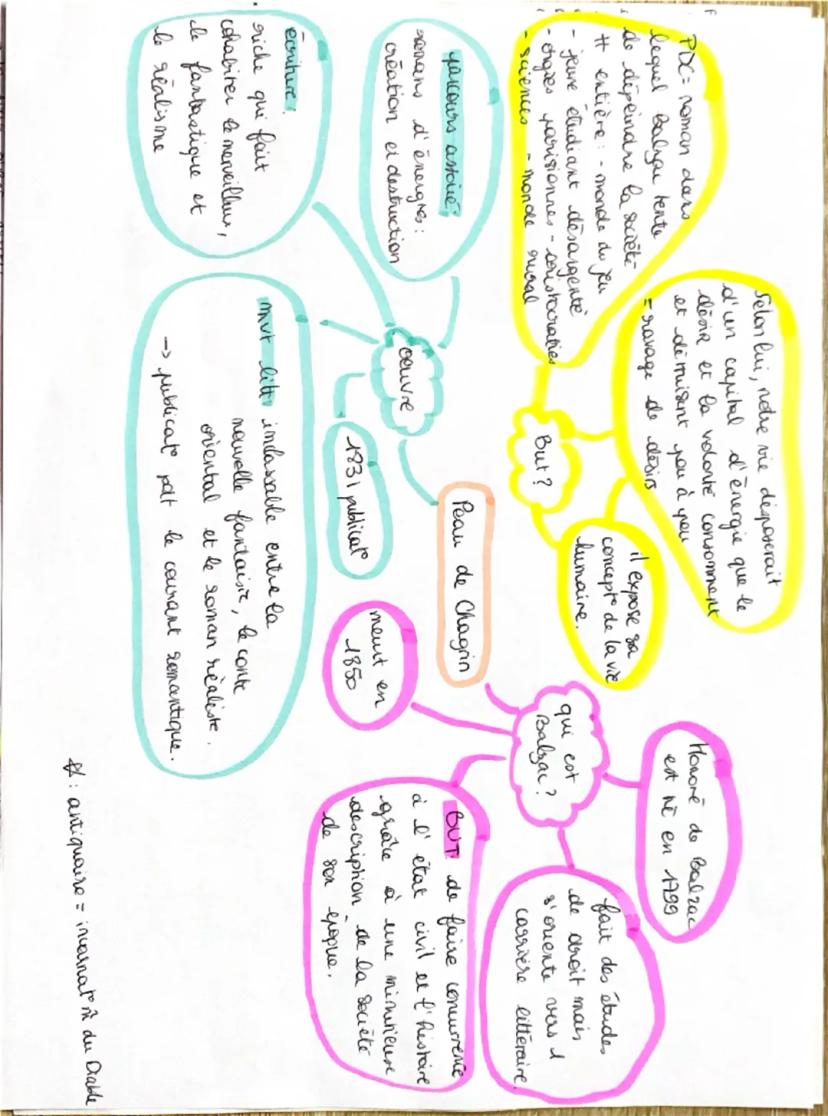 PDC = roman dans
lequel Balzac tente
de dépeindre la société
# entière : - monde du jeu
- jeune étudiant désargenté
- orgies parisiennes - aristocraties
- sciences - monde rural
Selon lui, notre vie disposerait
d'un capital d'énergie que le
désir et la volonté consomment
et détruisent peu à peu
= ravage de désirs
il expose sa
concept° de la vie
humaine.
But ?
parcours associé :
romans d'énergies :
création et destruction
écriture :
riche qui fait
cohabiter le merveilleux,
le fantastique et
le réalisme
oeuvre
1831 publicat°
mvt litt : inclassable entre la
nouvelle fantaisie, le conte
oriental et le roman réaliste.
→ publicat° pdt le courant romantique.
Peau de Chagrin
qui est
Balzac ?
Honoré de Balzac
est né en 1799
fait des études
de droit mais
s'oriente vers 1
carrière littéraire.
meurt en
1850
BUT de faire concurrence
à l'état civil et l'histoire
grâce à une minutieuse
description de la société
de son époque.
: antiquaire = incarnat° du Diable